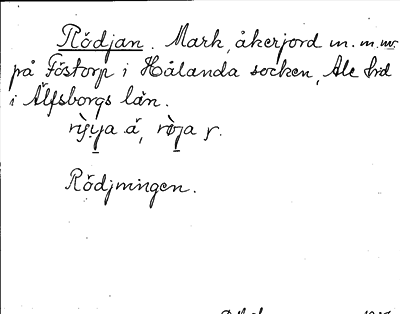 Rödjan. Mark, åkerjord m. m. m.
på Föstorp i Hålanda socken, Ale hrd
i Älfsborgs län.
röja
Rödjningen.